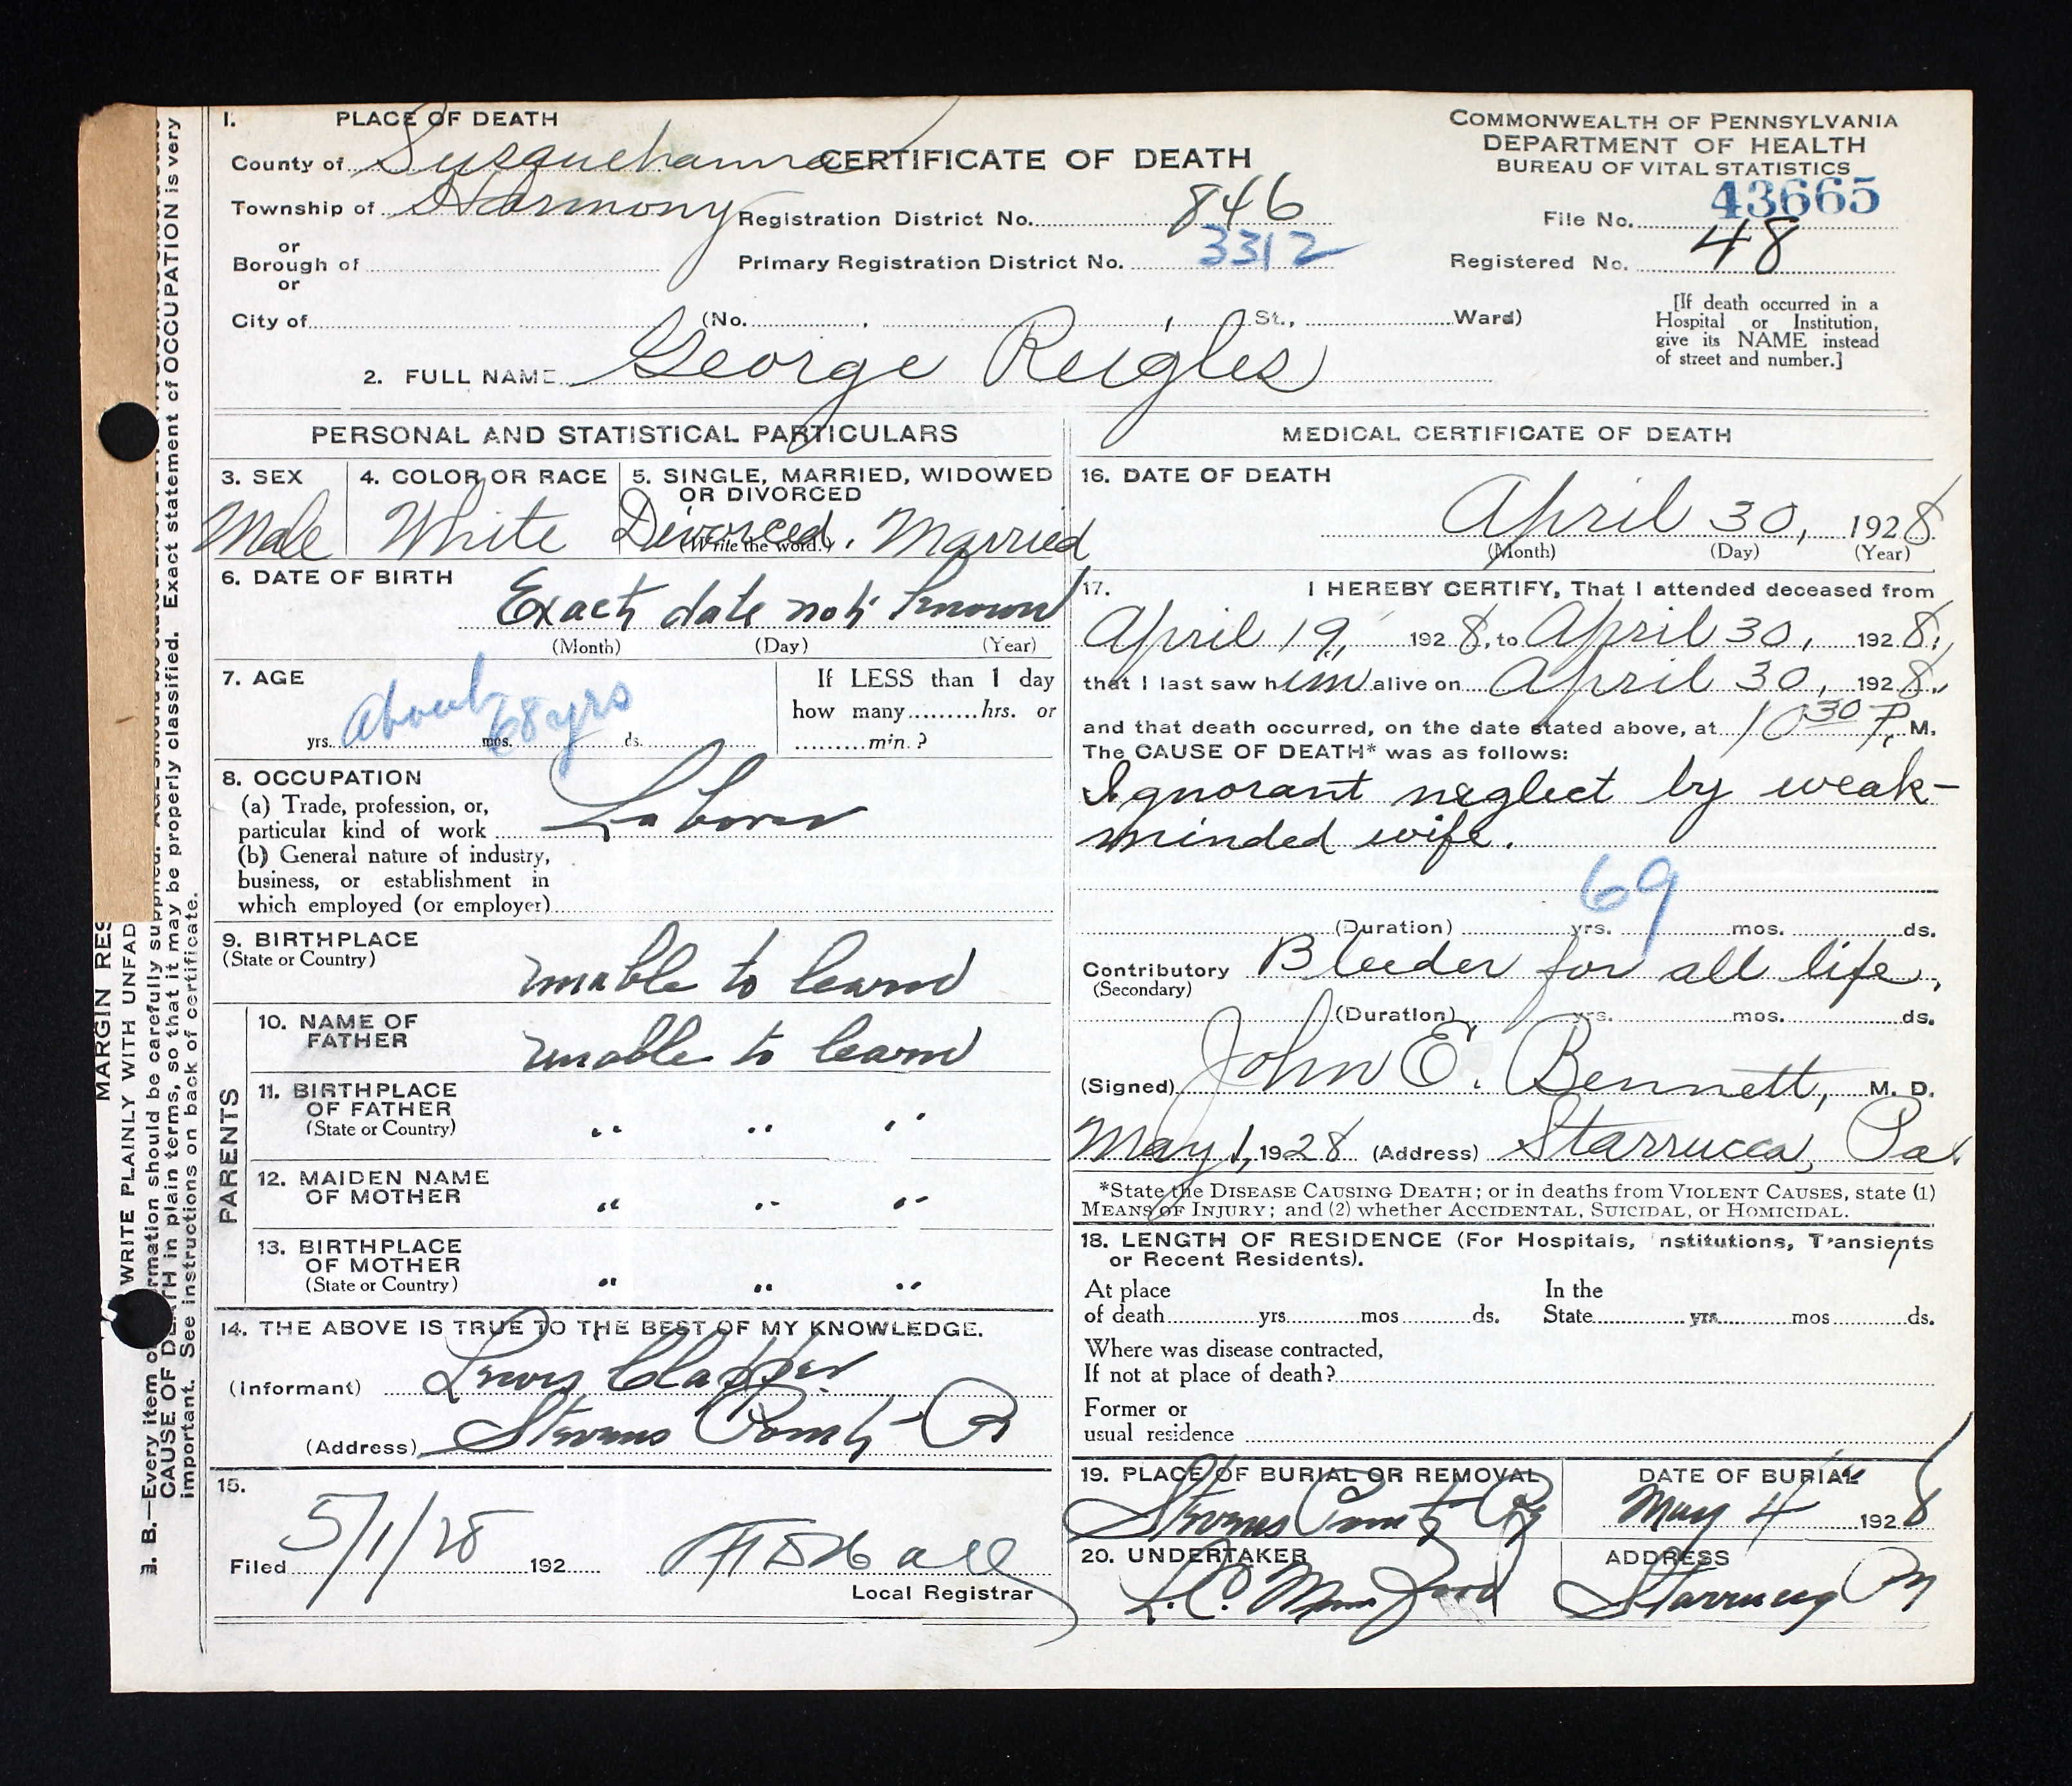 1. PLACE OF DEATH
County of Susquehanna
Township of Harmony
or
Borough of
or
City of (No. , , St., Ward)
CERTIFICATE OF DEATH
Registration District No. 846
Primary Registration District No. 3312
COMMONWEALTH OF PENNSYLVANIA
DEPARTMENT OF HEALTH
BUREAU OF VITAL STATISTICS
File No. 43665
Registered No. 48
[If death occurred in a
Hospital or Institution,
give its NAME instead
of street and number.]
2. FULL NAME George Reigles
PERSONAL AND STATISTICAL PARTICULARS
3. SEX
Male
4. COLOR OR RACE
White
5. SINGLE, MARRIED, WIDOWED
OR DIVORCED
Divorced. Married
(Write the word.)
6. DATE OF BIRTH
Exact date not known
(Month) (Day) (Year)
7. AGE
About 68 yrs
yrs. mos. ds.
If LESS than 1 day
how many.........hrs. or
.........min.?
8. OCCUPATION
(a) Trade, profession, or,
particular kind of work Laborer
(b) General nature of industry,
business, or establishment in
which employed (or employer)
9. BIRTHPLACE
(State or Country)
unable to learn
PARENTS
10. NAME OF
FATHER
unable to learn
11. BIRTHPLACE
OF FATHER
(State or Country) " " "
12. MAIDEN NAME
OF MOTHER " " "
13. BIRTHPLACE
OF MOTHER
(State or Country) " " "
14. THE ABOVE IS TRUE TO THE BEST OF MY KNOWLEDGE.
(Informant) Lewis Clapper
(Address) Stevens Point Pa
15.
Filed 5/1/28 192
Local Registrar
MEDICAL CERTIFICATE OF DEATH
16. DATE OF DEATH
April 30, 1928
(Month) (Day) (Year)
17. I HEREBY CERTIFY, That I attended deceased from
April 19, 1928, to April 30, 1928,
that I last saw him alive on April 30, 1928,
and that death occurred, on the date stated above, at 10 30 P. M.
The CAUSE OF DEATH* was as follows:
Ignorant neglect by weak-
minded wife.
69
(Duration) yrs. mos. ds.
Contributory Bleeder for all life,
(Secondary)
(Duration) yrs. mos. ds.
(Signed) John E. Bennett, M. D.
May 1, 1928 (Address) Starrucca, Pa.
*State the DISEASE CAUSING DEATH; or in deaths from VIOLENT CAUSES, state (1)
MEANS OF INJURY; and (2) whether ACCIDENTAL, SUICIDAL, or HOMICIDAL.
18. LENGTH OF RESIDENCE (For Hospitals, Institutions, Transients
or Recent Residents).
At place
of death yrs mos ds.
In the
State yrs. mos ds.
Where was disease contracted,
If not at place of death?
Former or
usual residence
19. PLACE OF BURIAL OR REMOVAL
Stevens Point Pa
DATE OF BURIAL
May 4 1928
20. UNDERTAKER
ADDRESS
Starrucca Pa
MARGIN RES
WRITE PLAINLY WITH UNFAD
N. B.—Every item of
rmation should be carefully supplied.
CAUSE OF DEATH in plain terms, so that it may be properly classified. Exact statement of OCCUPATION is very
important. See instructions on back of certificate.